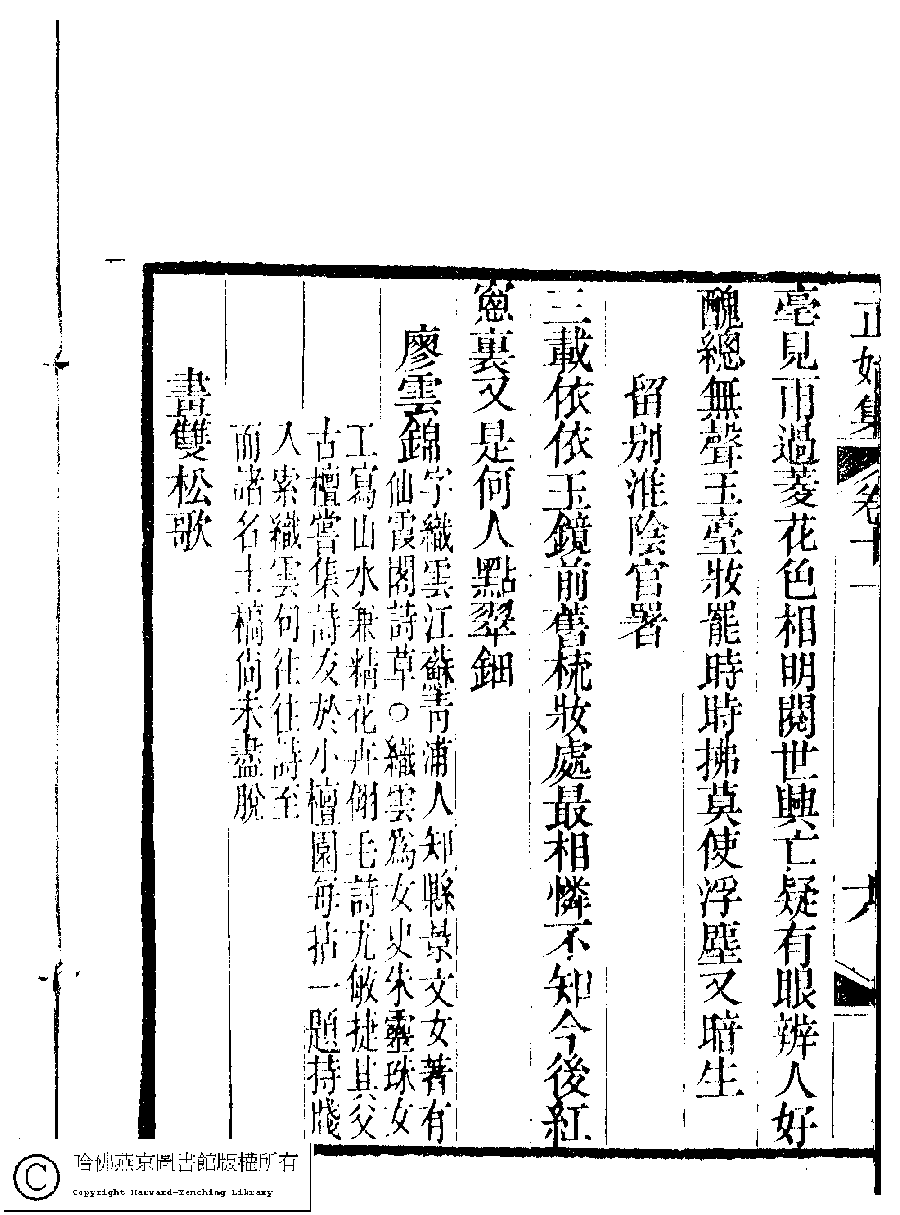 正始集 卷十一 六
毫見雨過菱花色相明閱世興亡疑有眼辨人好
醜總無聲玉臺妝罷時時拂莫使浮塵又暗生
留别淮陰官署
三載依依玉鏡前舊梳妝處最相憐不知今後紅
窻裏又是何人點翠鈿
廖雲錦字織雲江蘇青浦人知縣景文女著有
仙霞閣詩草○織雲為女史朱靈珠女
工寫山水兼精花卉翎毛詩尤敏捷其父
古檀嘗集詩友於小檀園每拈一題持牋
入索織雲句往往詩至
而諸名士稿尚未盡脫
畫雙松歌
哈佛燕京圖書館版權所有
Copyright Harvard-Yenching Library